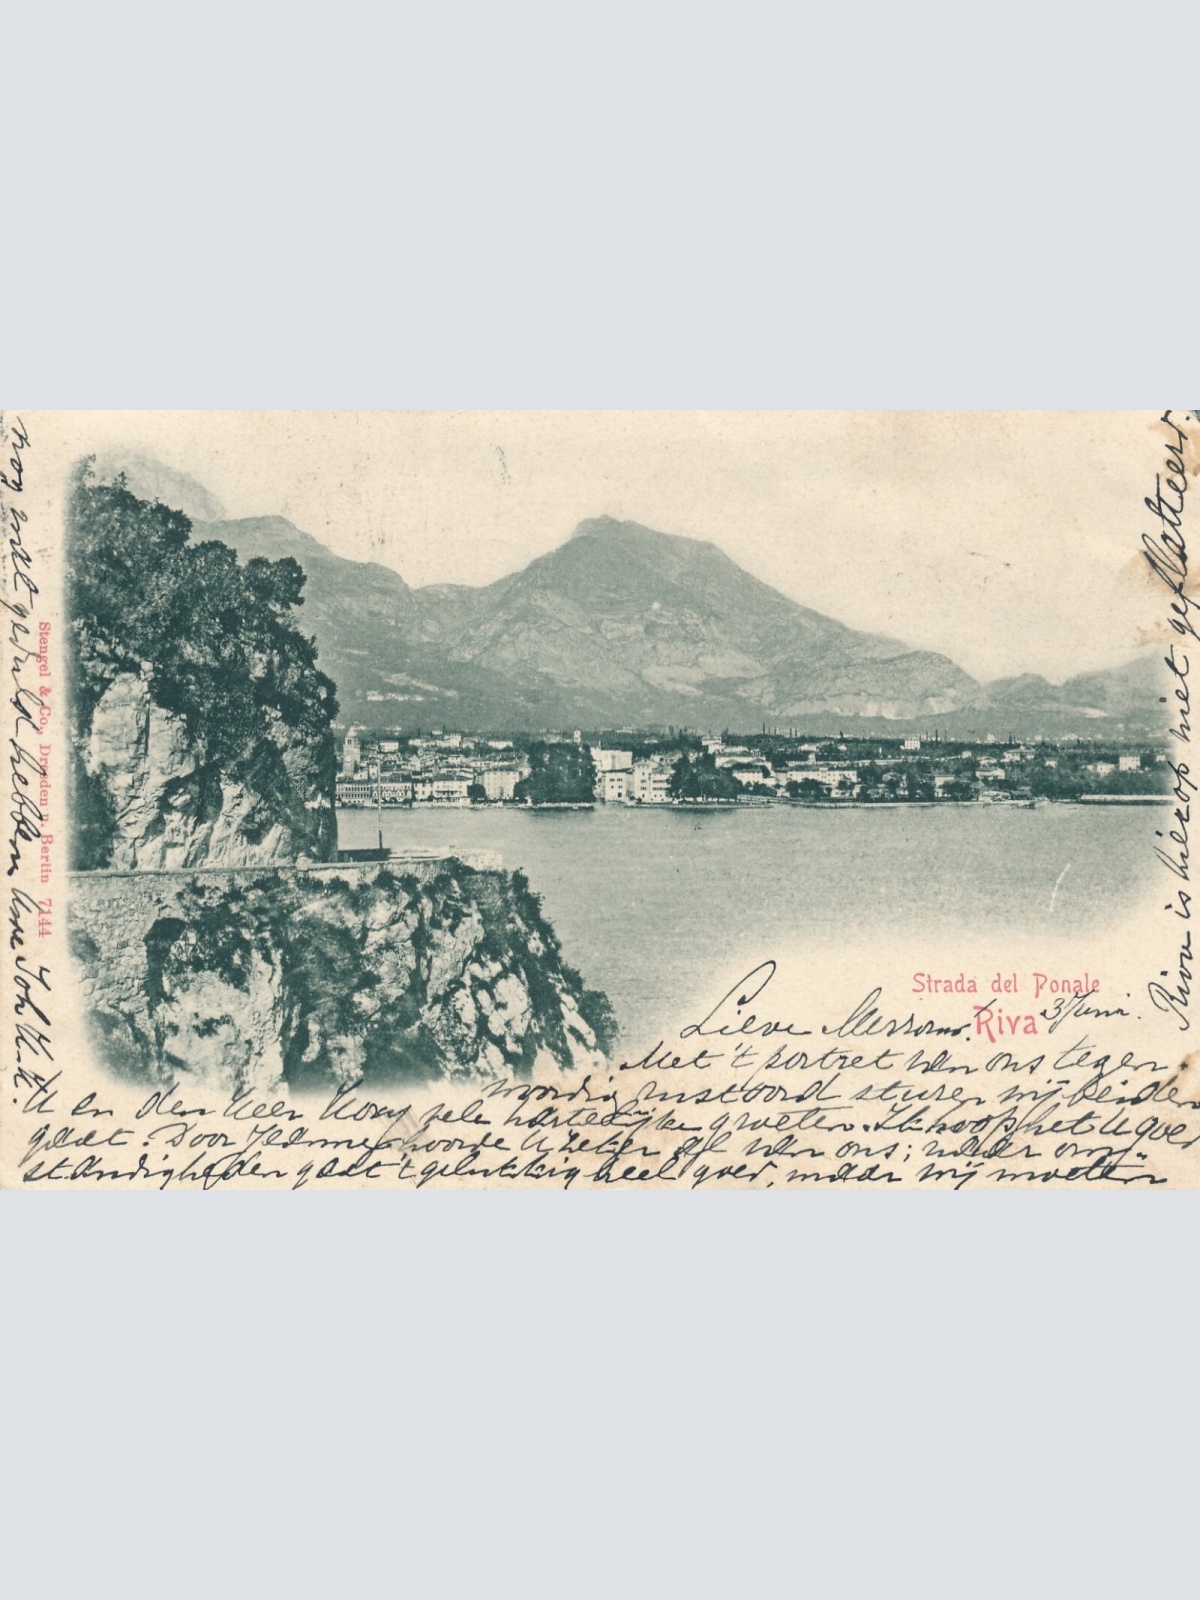 Strada del Ponale
Riva
3 Juni.
Lieve
Met 't portret van ons tegen-
woordig rustoord sturen wij beiden
U en den Heer vele hartelijke groeten. Ik hoop het U goed
gaat. Door Jeanne hoorde U zeker al van ons; naar om-
standigheden gaat 't gelukkig heel goed, maar wij moeten
nog wat geduld hebben. Uwe Joh.
Riva is hierop niet geflatteerd.
Stengel & Co., Dresden u. Berlin 7144